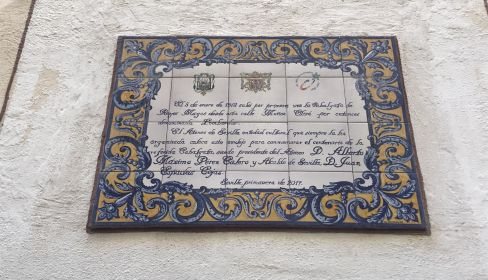 El 5 de enero de 1918 salió por primera vez la Cabalgata de
Reyes Magos desde esta calle Muñoz Olivé por entonces
denominada Lombardos
El Ateneo de Sevilla entidad cultural que siempre la ha
organizado coloca este azulejo para conmemorar el centenario de la
Cabalgata, siendo presidente del Ateneo D. Alberto
Máximo Pérez Calero y Alcalde de Sevilla D. Juan
Espadas Cejas
Sevilla primavera de 2017.